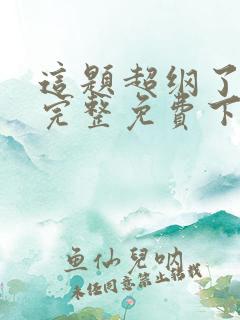 這題超纲了
完整免費下
鱼仙兒呐
未经同意禁止转载